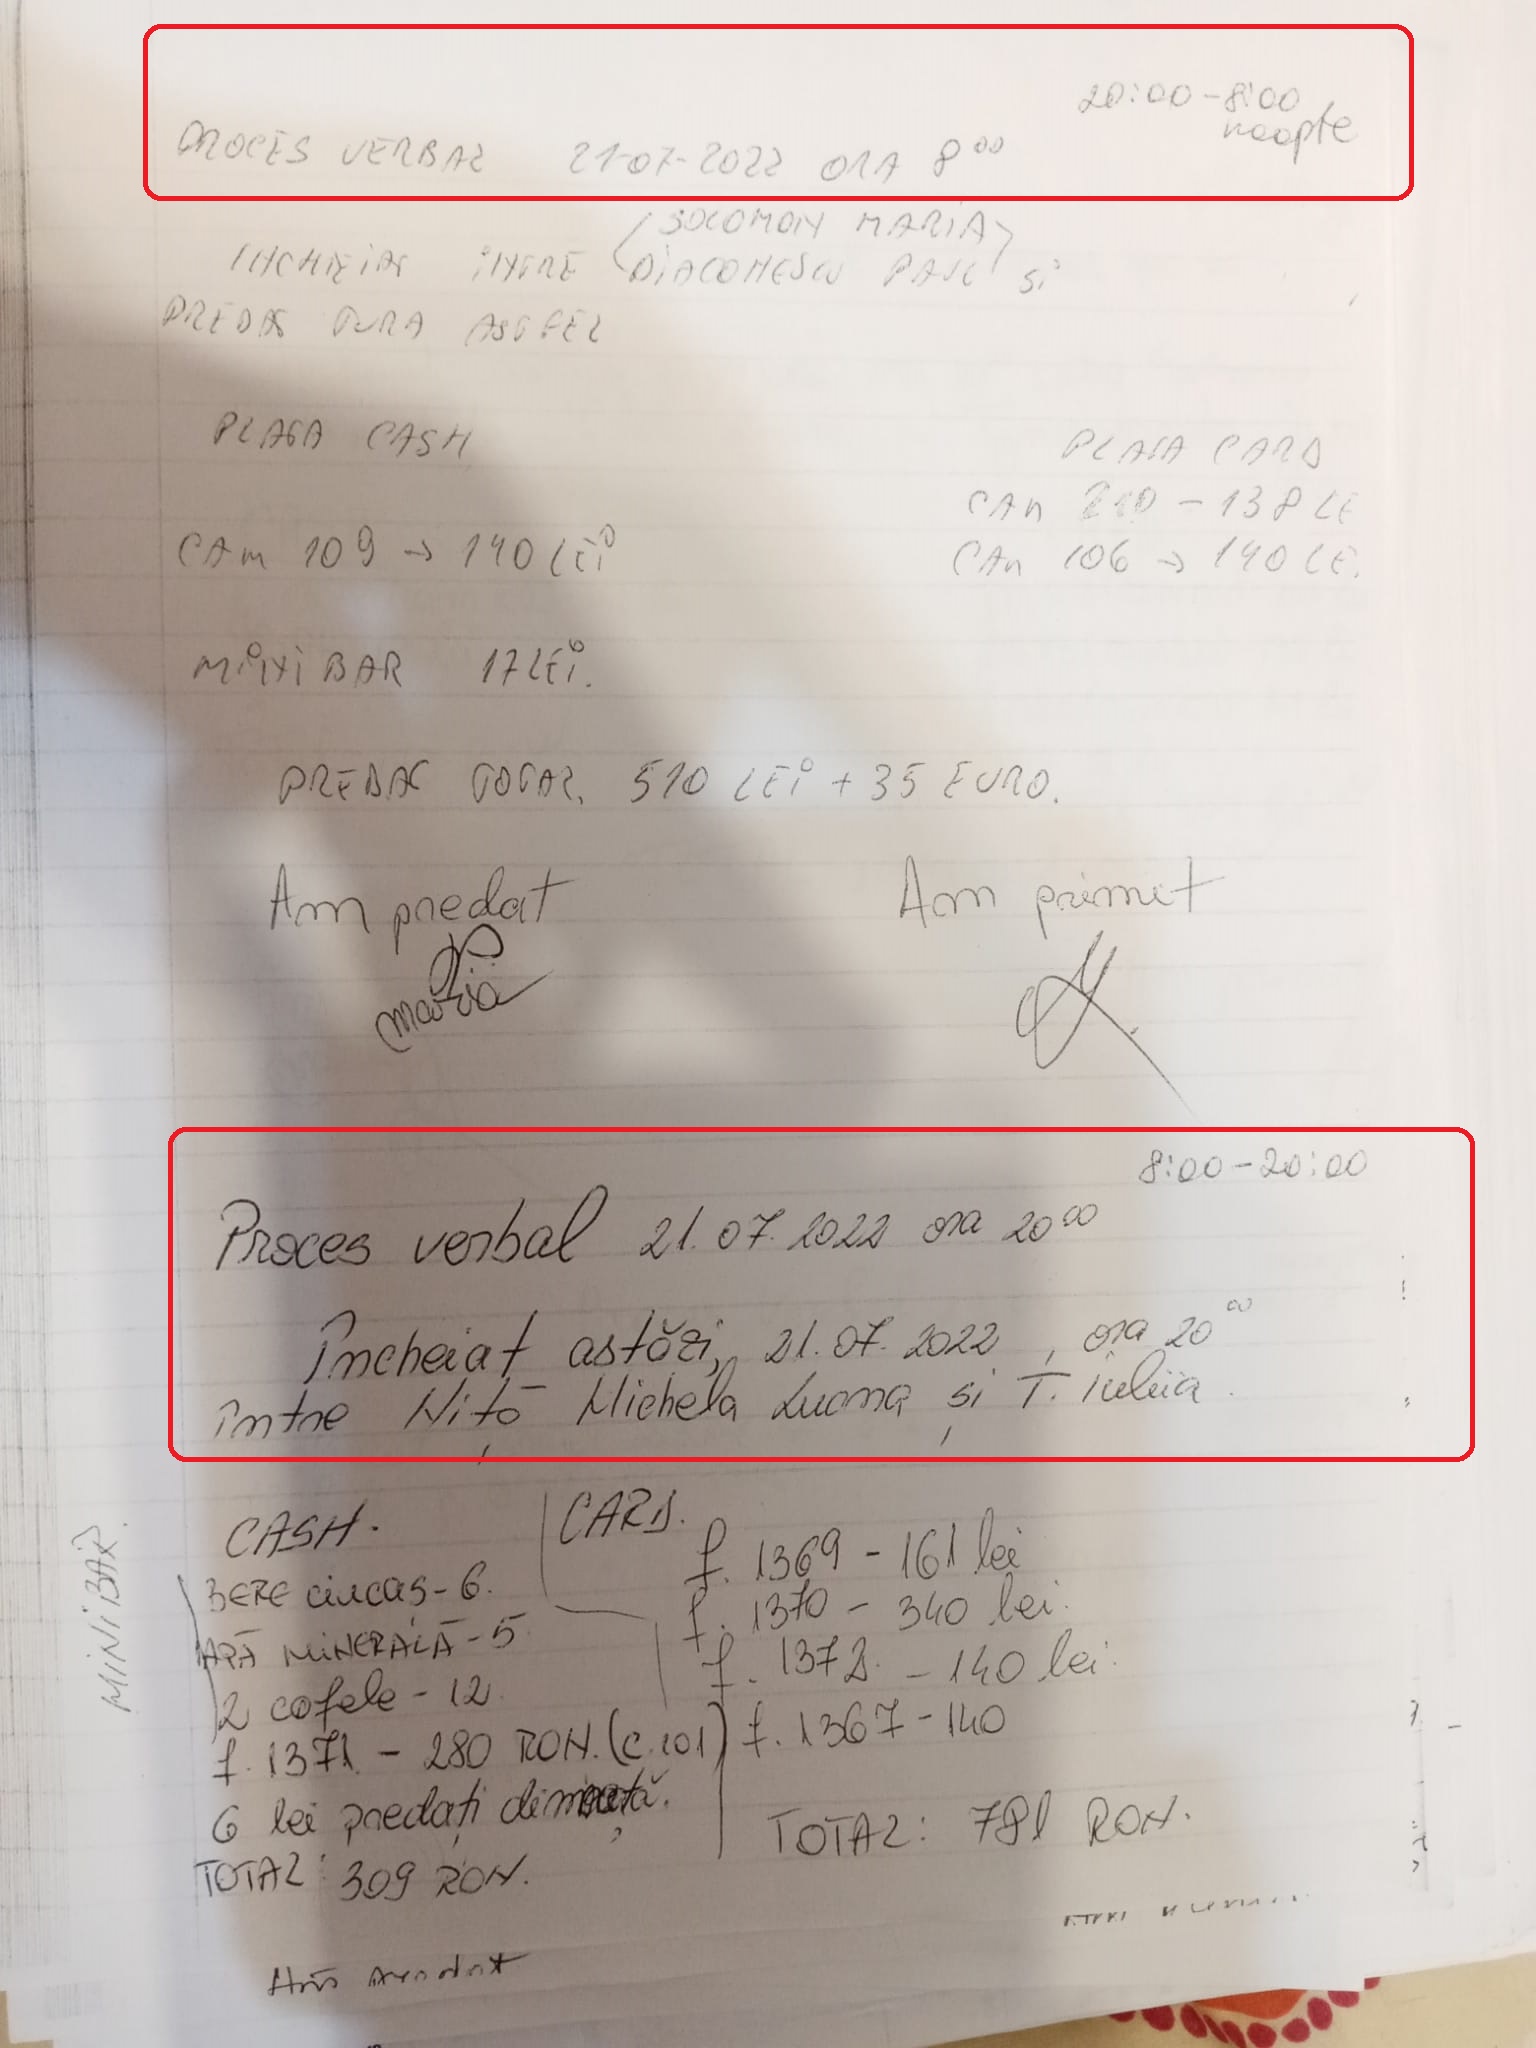 20:00-8:00
noapte
PROCES VERBAL 21-07-2022 ORA 8⁰⁰
SOLOMON MARIA
INCHEIAT INTRE DIACONESCU PAUL si
PREDAT TURA ASTFEL
PLATA CASH
PLATA CARD
CAM 210 - 138 LE
CAM 109 → 140 LEI
CAM 106 → 140 LE.
MINIBAR 17 LEI.
PREDAT TOTAL 510 LEI + 35 EURO.
Am predat
Am primit
Maria
8:00-20:00
Proces verbal 21.07.2022 ora 20⁰⁰
Încheiat astăzi, 21.07.2022, ora 20⁰⁰
între Niță Michela Luana și T. Iulia
CASH.
CARD.
MINIBAR.
BERE ciucaș - 6.
APĂ MINERALĂ - 5
2 cafele - 12
f. 1371 - 280 RON. (c.101)
6 lei predați dimineață.
TOTAL: 309 RON.
f. 1369 - 161 lei
f. 1370 - 340 lei.
f. 1372. - 140 lei.
f. 1367 - 140
TOTAL: 781 RON.
Am predat